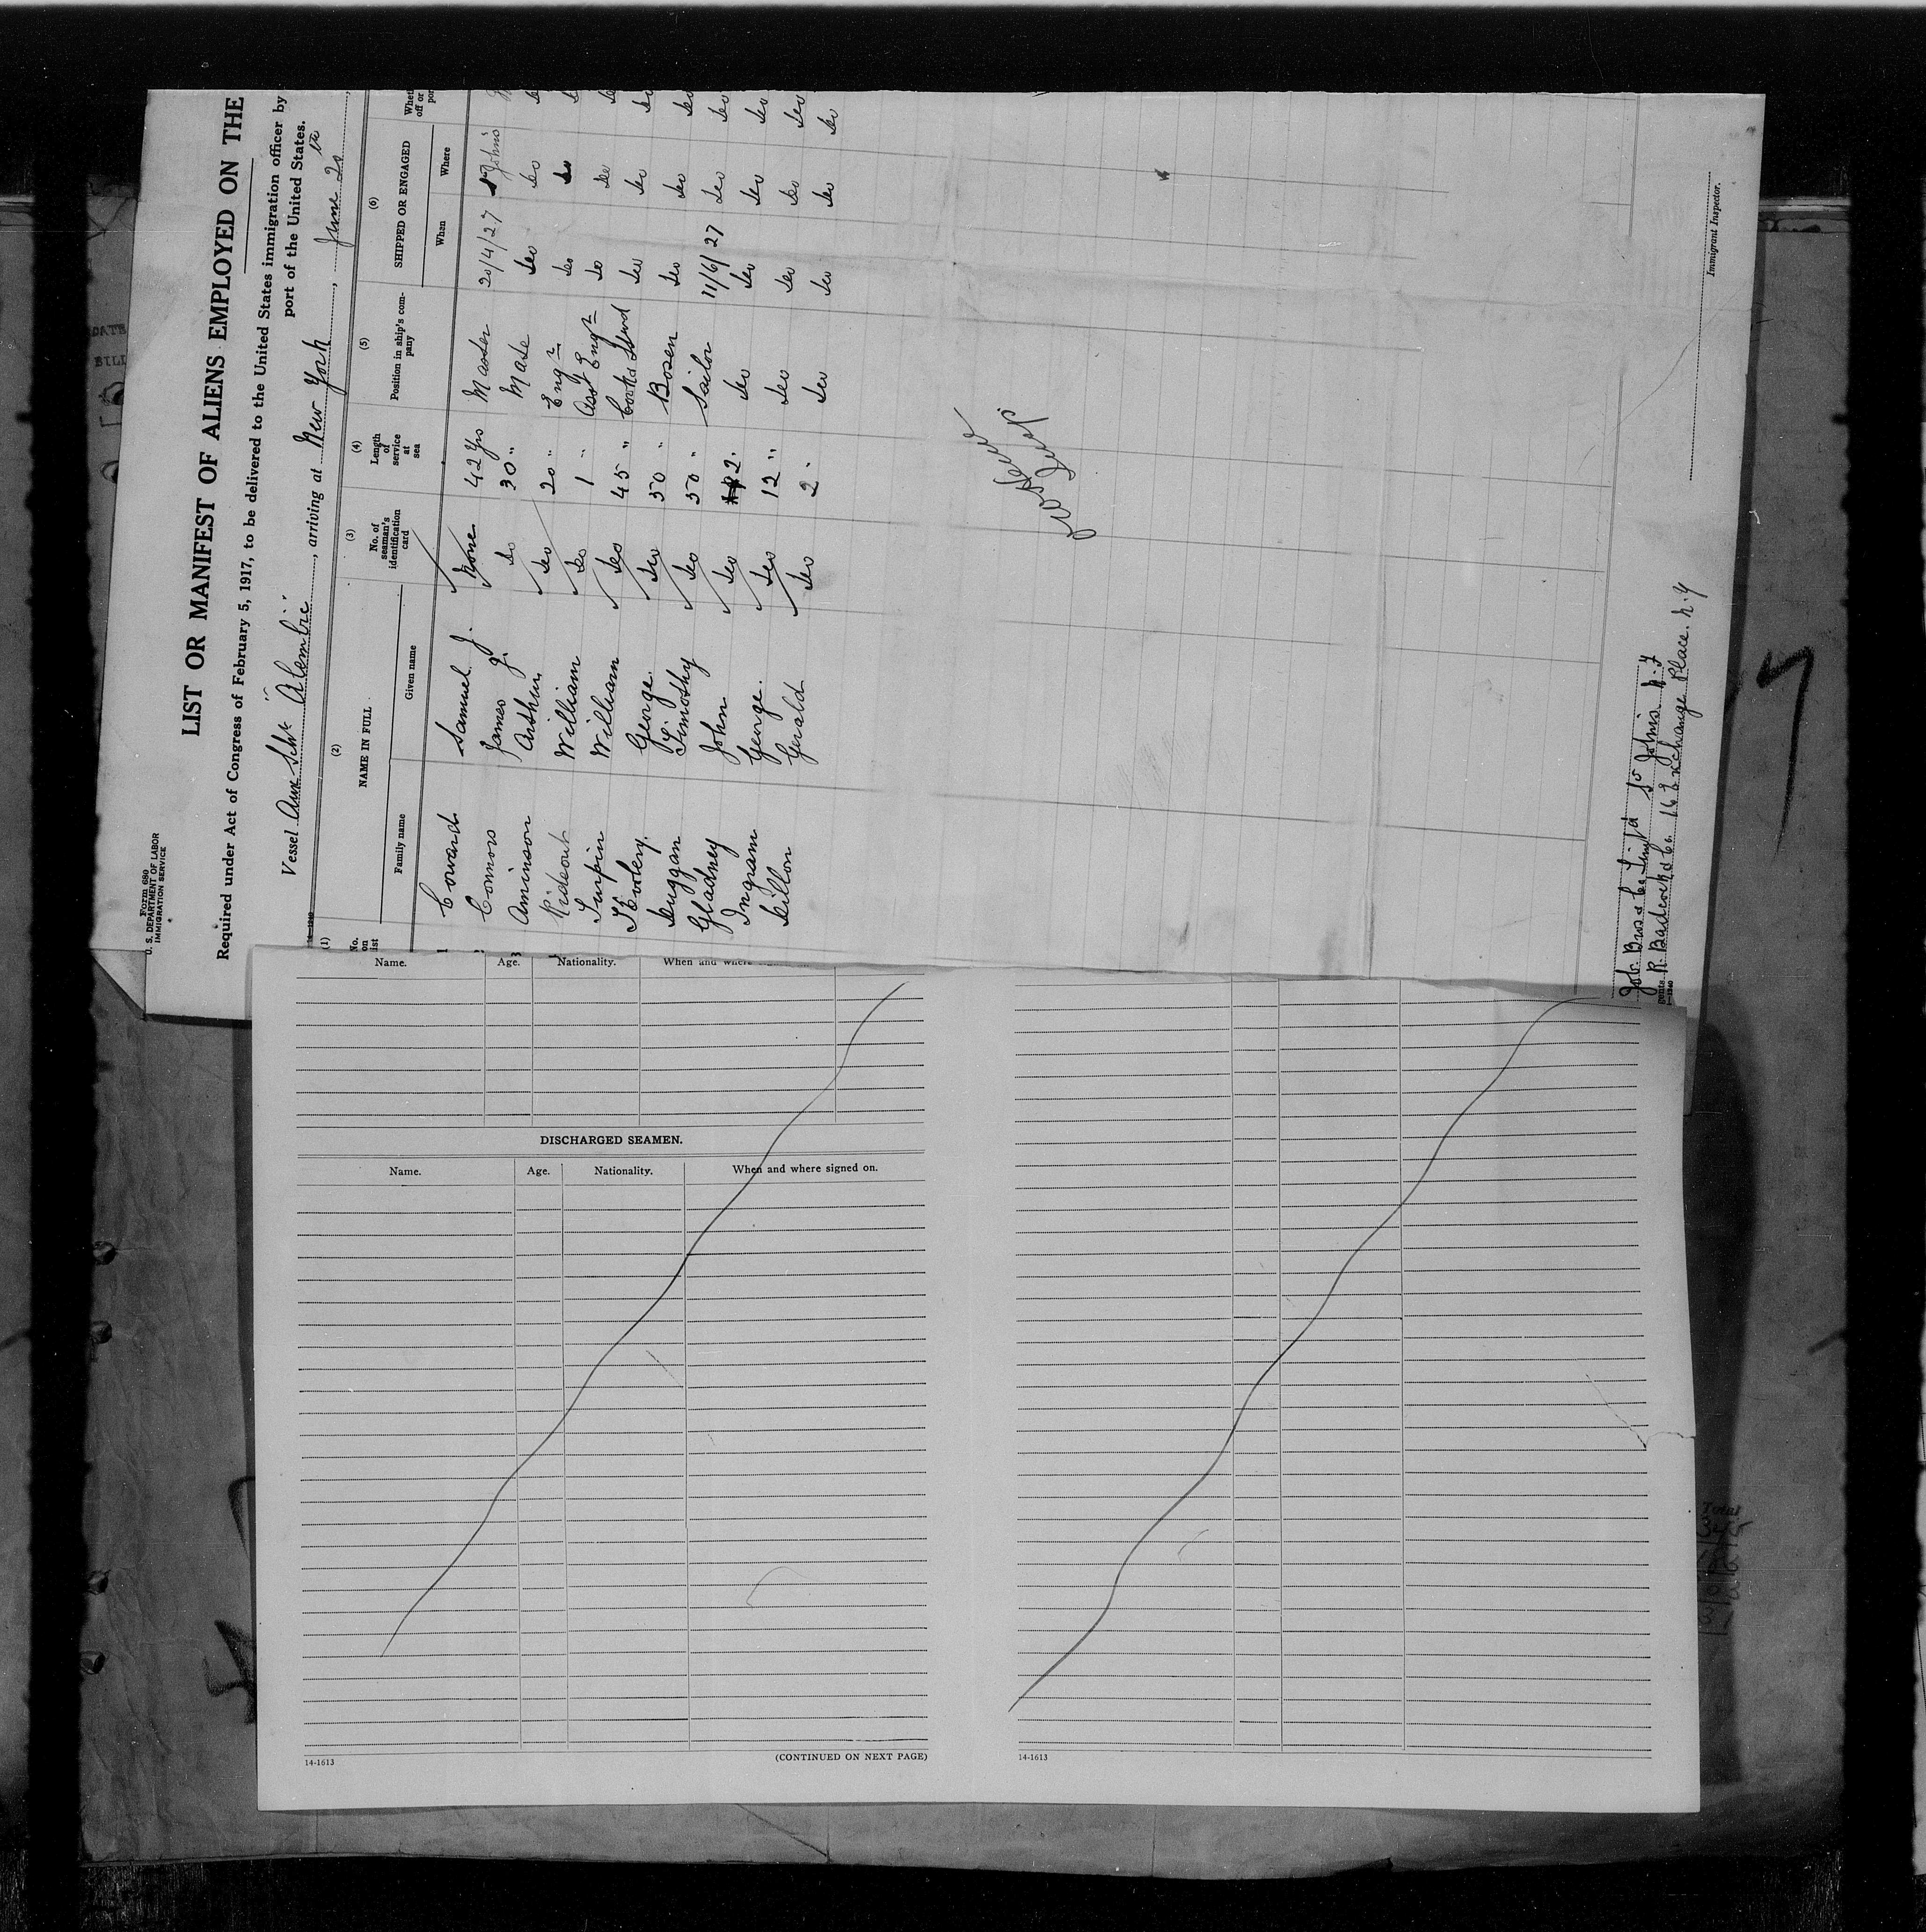 Form 680
U. S. DEPARTMENT OF LABOR
IMMIGRATION SERVICE
LIST OR MANIFEST OF ALIENS EMPLOYED ON THE
Required under Act of Congress of February 5, 1917, to be delivered to the United States immigration officer by
port of the United States.
Vessel Aux Schr "Alembic", arriving at New York, June 20th
(1) (2) (3) (4) (5) (6)
No. on list NAME IN FULL No. of seaman's identification card Length of service at sea Position in ship's company SHIPPED OR ENGAGED
Family name Given name When Where
1 Coward Samuel J. None 42 Yrs Master 20/4/27 St Johns
Connors James J. do 30 " Mate do do
3 Arthur do 20 " Engr do do
Rideout William do 1 " Asst Engr do do
Turpin William do 45 " Cook & Stwd do do
George do 50 " Bosen do do
Duggan Timothy do 50 " Sailor 11/6/27 do
Gladney John do 2 " do do do
Ingram George do 12 " do do do
Dillon Gerald do 2 " do do do
Job Bros & Co Limjtd St Johns. N.F
R. Badcock & Co. 16 Exchange Place. N.Y
Immigrant Inspector.
Name. Age. Nationality. When and where
DISCHARGED SEAMEN.
Name. Age. Nationality. When and where signed on.
14-1613 (CONTINUED ON NEXT PAGE) 14-1613
Total